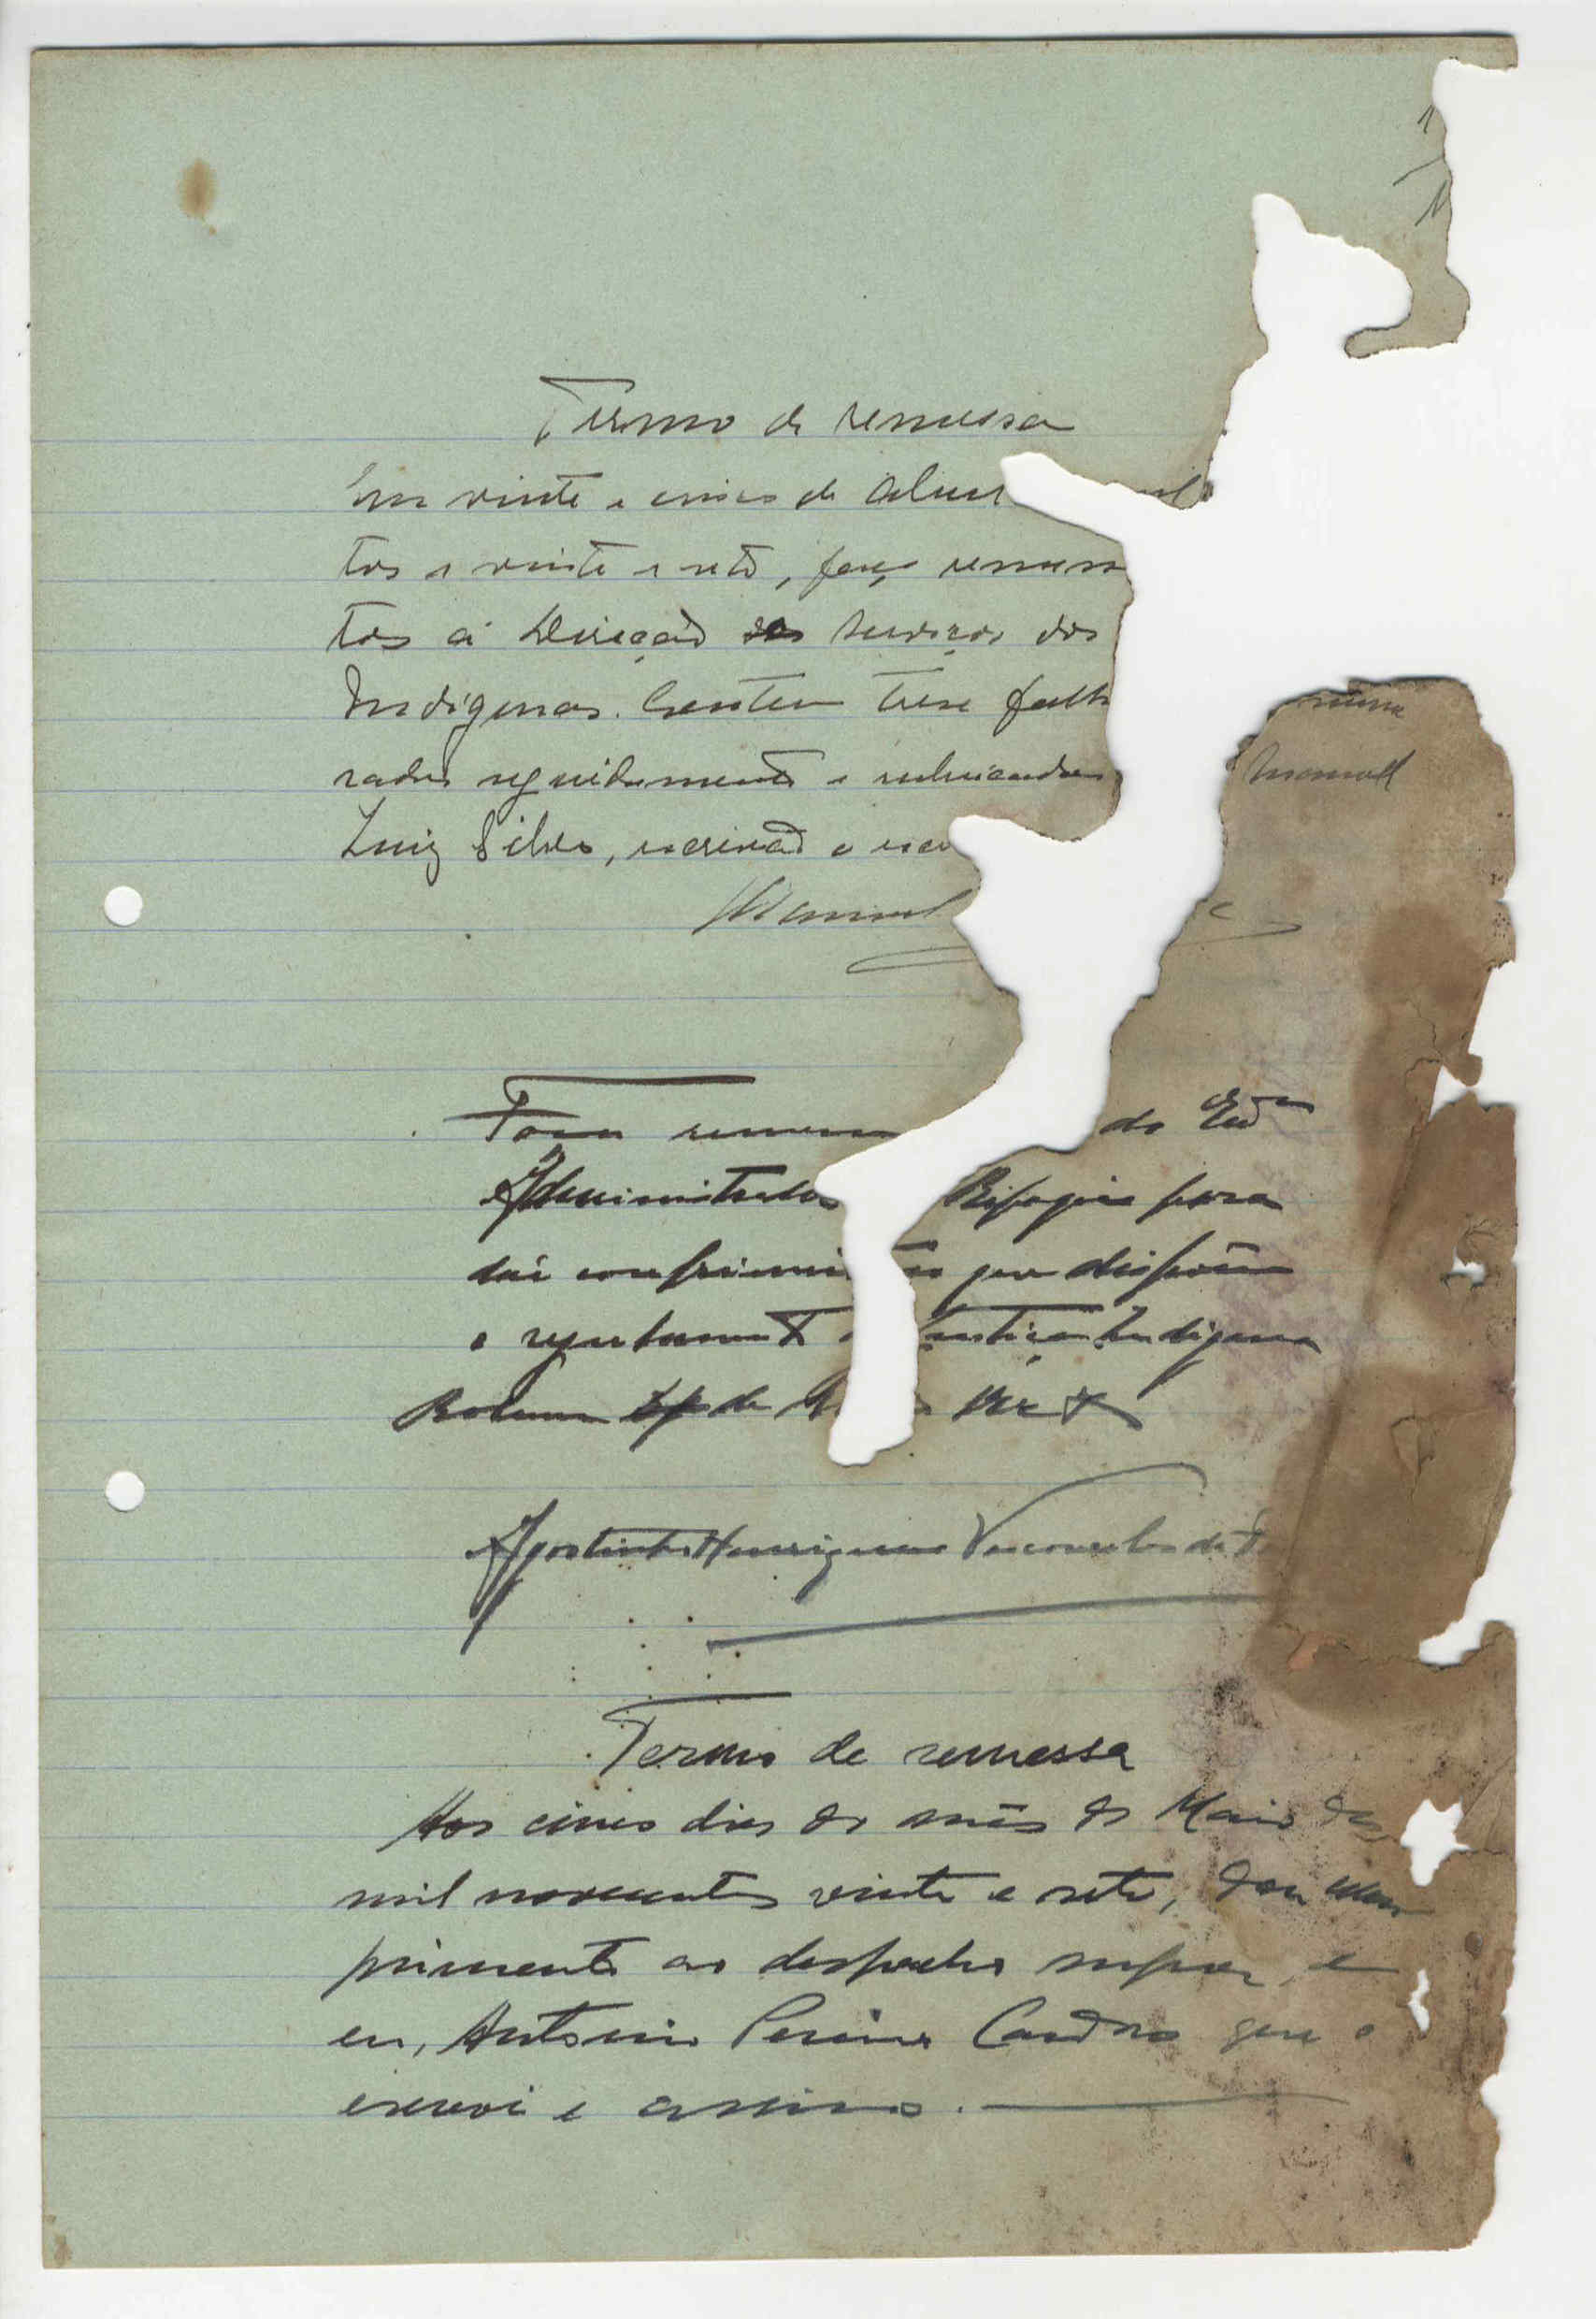 Termo de remessa
Em vinte e cinco de Abril mil
tos e vinte e sete, faço remessa
tos á Direcção dos Serviços dos
Indígenas. Contem treze folh nume
radas seguidamente e rubricadas Manuel
Luiz Silva, escrivão o escr
Manuel
Faça remessa do
Administrador Bijagós para
dar comprimen to que dispõem
o regulamento Justiça Indigena
Bolama de
Agostinho Henriques Vasconcelos da
Termo de remessa
Aos cinco dias do mês de Maio de
mil novecentos vinte e sete, dou cum
primento ao despacho supra, e
eu, Antonio Pereira Cardoso que o
escrevi e assino.